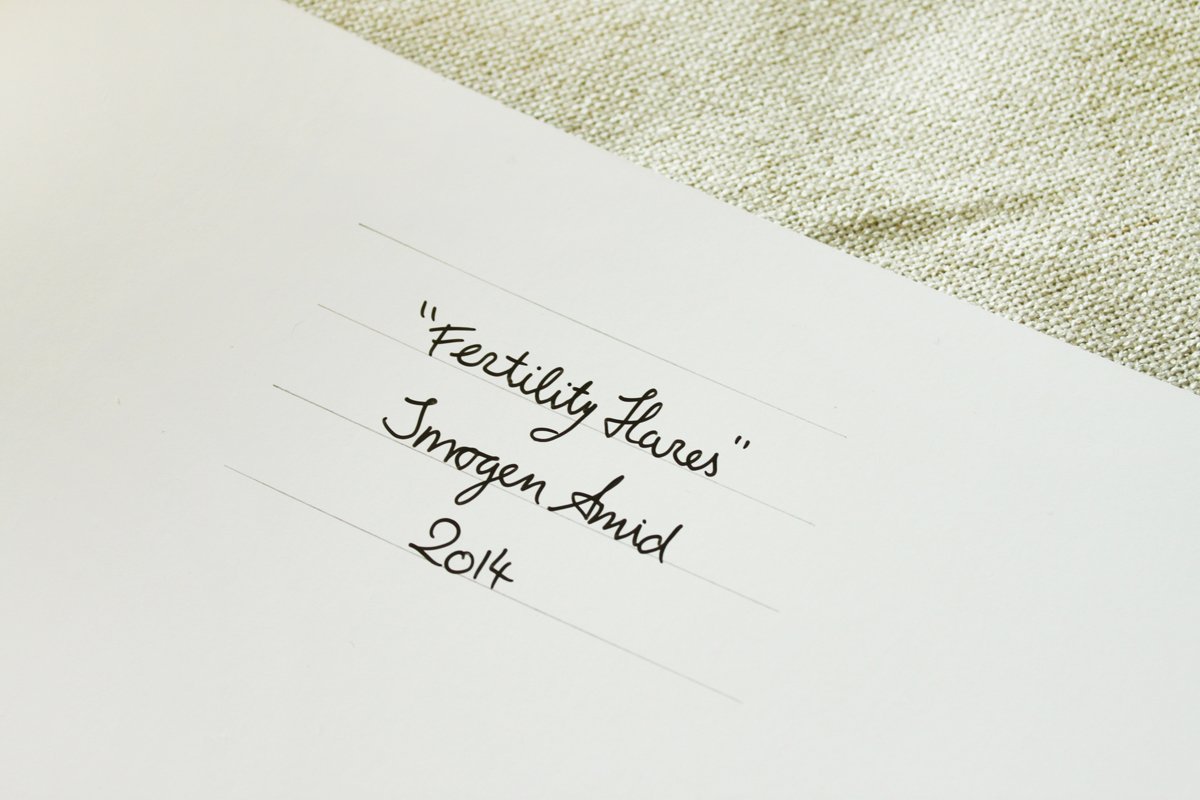 "Fertility Hares"
Imogen Amid
2014